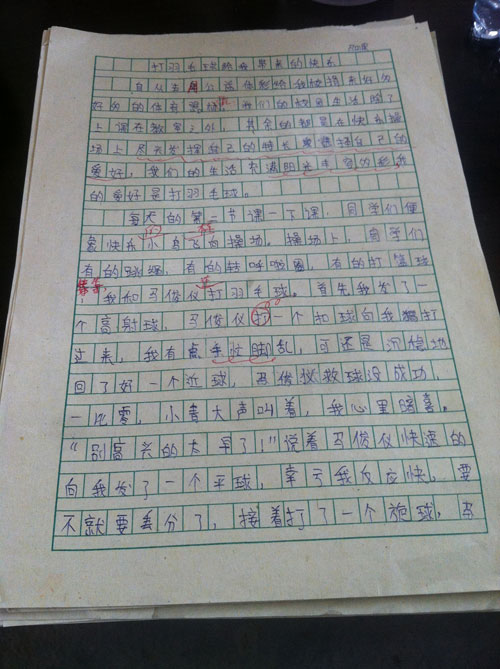 打羽毛球给我带来的快乐
自从
好的体育
上课在教室之外，其余的都是在快乐操
场上尽充分发挥自己的特长
爱好，我们的生活充满阳光丰富多彩，我
的爱好是打羽毛球。
每天的第二节课一下课，同学们便
象快乐小鸟飞向操场。操场上，同学们
有的跳绳，有的转呼啦圈，有的打篮球
等等，我和马俊仪打羽毛球。首先我发了一
个高射球，马俊仪打一个扣球向我猛打
过来，我有点手忙脚乱，可还是沉稳地
回了好一个近球，马俊仪救球没成功，
一比零，小青大声叫着，我心里暗喜。
“别高兴的太早了！”说着马俊仪快速的
向我发了一个平球，幸亏我反应快，要
不就要丢分了，接着打了一个球，马